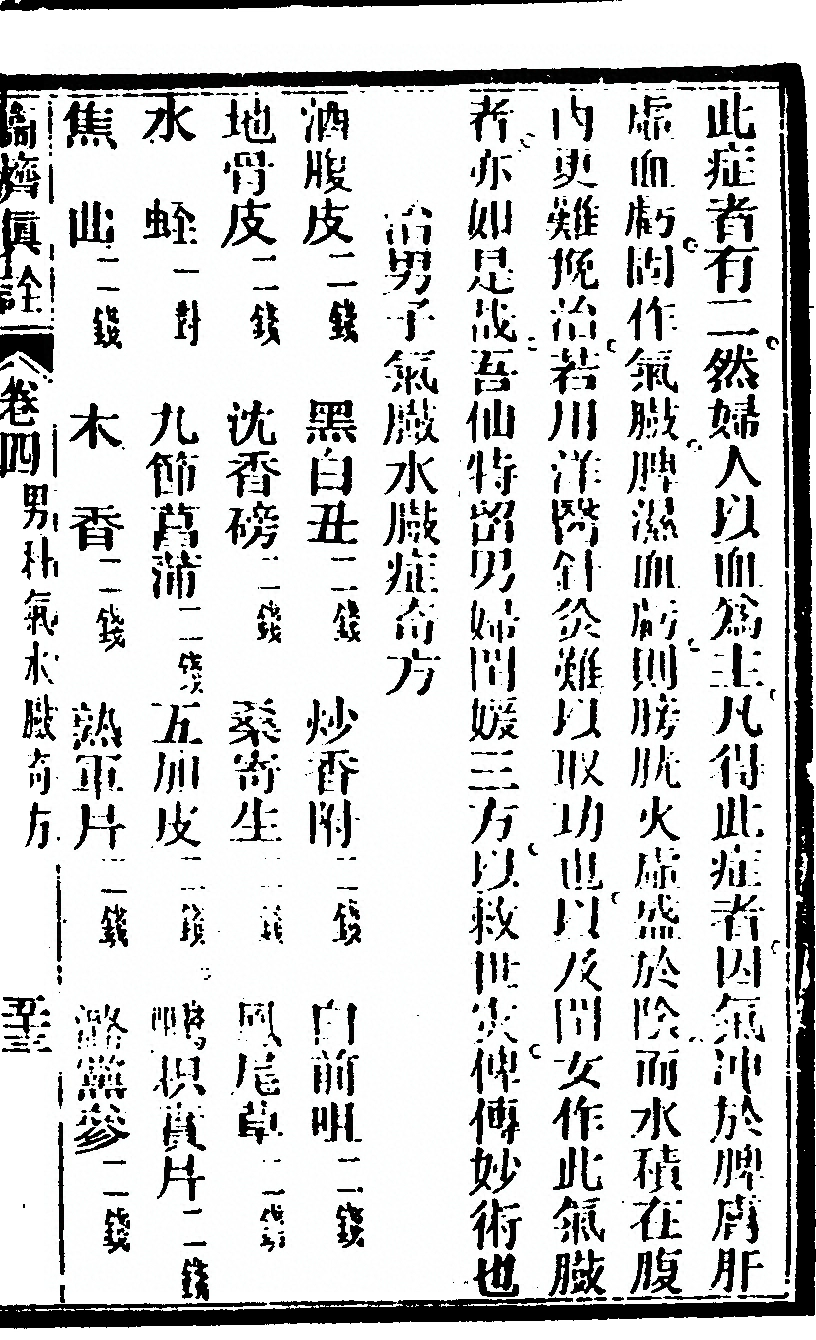 此症者有二然婦人以血為主凡得此症者因氣冲於脾膚肝
虛血虧固作氣臌脾濕血虧則膀胱火虛盛於陰而水積在腹
內更難挽治若用洋醫針灸難以取功也以及閨女作此氣臌
者亦如是哉吾仙特留男婦閨媛三方以救世災俾傳妙術也
治男子氣臌水臌症奇方
酒腹皮二錢 黑白丑二錢 炒香附二錢 白前咀二錢
地骨皮二錢 沈香磅二錢 桑寄生二錢 鳳尾草二錢
水蛭一對 九節菖蒲二錢 五加皮二錢 鵝枳實片二錢
焦山二錢 木香二錢 熟軍片二錢 潞黨參二錢
濟眞詮 卷四 男科氣水臌奇方 至三